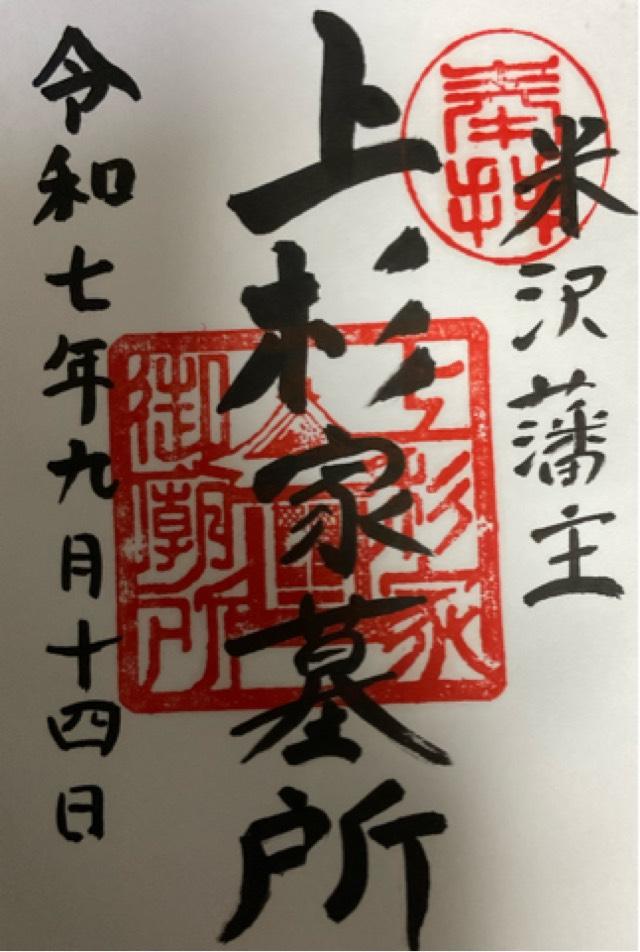 奉拝
米沢藩主
上杉家墓所
上杉家
御廟所
令和七年九月十四日